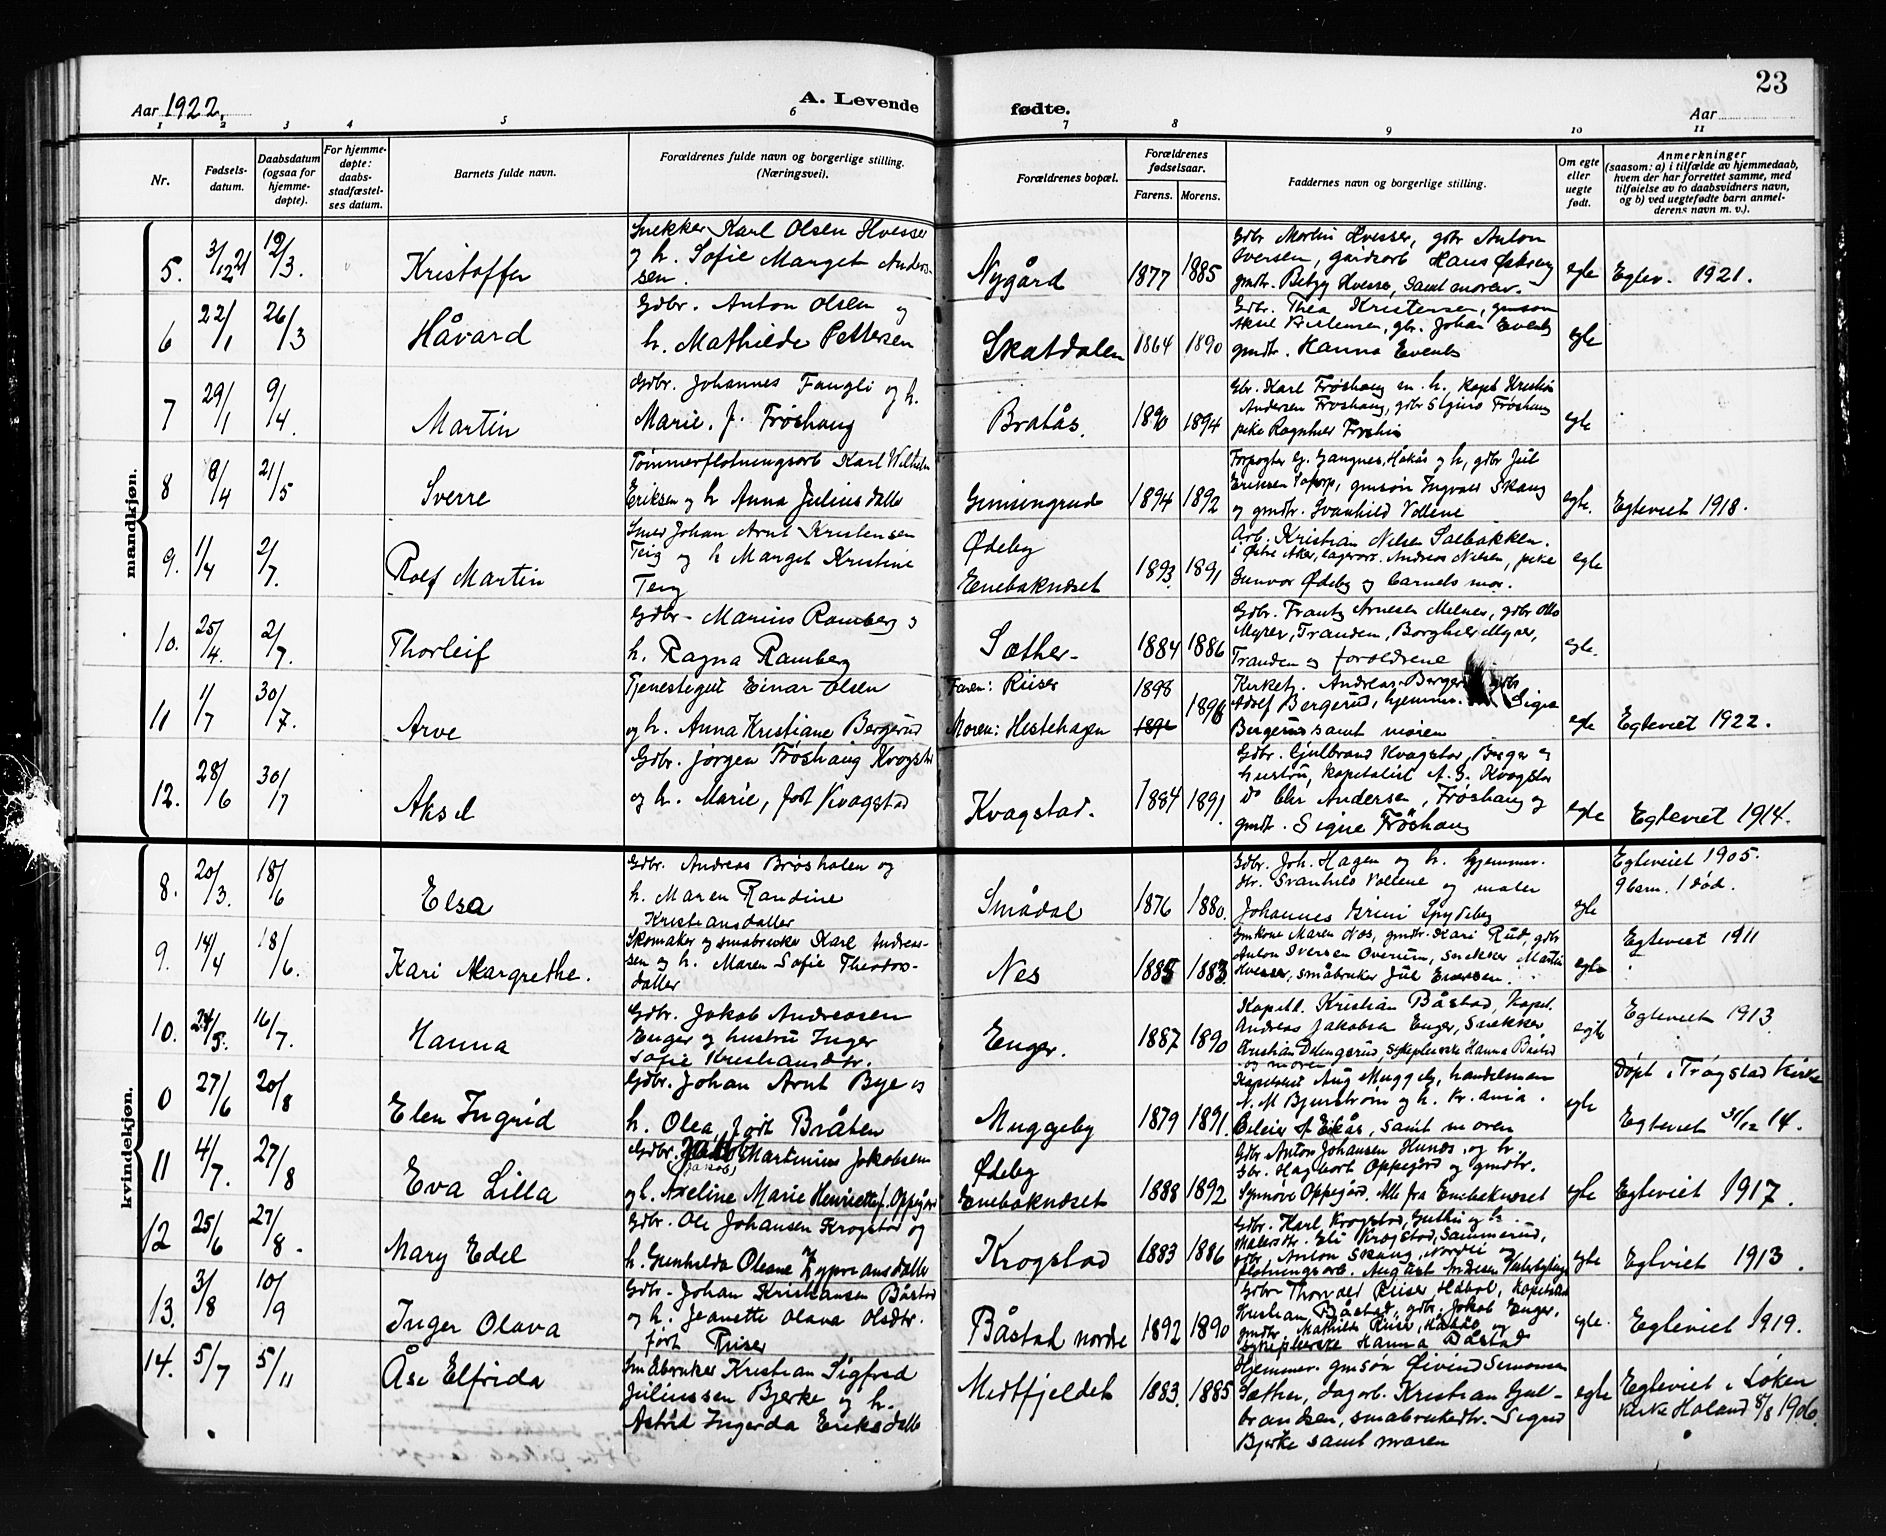 Aar 1922.
A. Levende
fødte.
Aar
23
1 2 3 4 5 6 7 8 9 10 11
Nr.
Fødsels-
datum.
Daabsdatum
(ogsaa for
hjemme-
døpte).
For hjemme-
døpte:
daabs-
stadfæstel-
ses datum.
Barnets fulde navn.
Forældrenes fulde navn og borgerlige stilling.
(Næringsvei).
Forældrenes bopæl.
Forældrenes
fødselsaar.
Farens. Morens.
Faddernes navn og borgerlige stilling.
Om egte
eller
uegte
født.
Anmerkninger
(saasom: a) i tilfælde av hjemmedaab,
hvem der har forrettet samme, med
tilføielse av to daabsvidners navn,
og b) ved uegtefødte barn anmel-
derens navn m. v.).
mandkjøn.
5. 3/12 21 12/3. Kristoffer
Snekker Karl Olsen Hvesser
og h. Sofie Marget Anders-
sen.
Nygård 1877 1885
Gdbr Martin Hvesser, gdbr Anton
Iversen, gårdsarb Hans
gmdtr. Betzy Hvesser, samt moren.
egte Egtev. 1921.
6 22/1 26/3 Håvard
Gdbr. Anton Olsen og
h. Mathilde Pettersen
Skatdalen 1864 1890
Gdbr. Thea Kristensen, gmsøn
Aksel Kristensen, gbr. Johan Evenby
gmdtr. Hanna Evenby
egte
7 29/1 9/4. Martin
Gdbr. Johannes Fangli og h.
Marie, f. Frøshaug
Bratås. 1890 1894
Gbr. Karl Frøshaug m. h., kapt Kristian
Andersen Frøshaug, gdbr Sigurd Frøshaug
pike Ragnhild
egte
8 8/4 21/5 Sverre
Tømmerflotningsarb Karl Wilhelm
Eriksen og h Anna Juliusdatte
Gimsingrud 1894 1892
Forpagter Gangnes, Hakås og h, gdbr Jul
Eriksen gmsøn Ingvald Skaug
og gmdtr. Svanhild Vollene
egte. Egteviet 1918.
9. 1/4 2/7. Rolf Martin
Smed Johan Arnt Kristensen
Teig og h Marget Kristine
Teig
Ødeby
Enebaknæset 1893. 1891
Arb. Kristian Nilsen Sælbakken.
i Østre Aker, lagerarb. Andreas Nilsen, pike
Gunvor Ødeby og barnets mor.
egte
10. 25/4. 2/7. Thorleif
Gdbr. Marius Ramberg og
h. Ragna Ramberg
Sæther. 1884 1886
Gdbr. Frantz Arnesen Melnes, gdbr Otto
Myrer, Tranden, Borghild Myrer,
Tranden og forældrene
egte.
11 1/7 30/7. Arve
Tjenestegut Einar Olsen
og h. Anna Kristiane Bergerud
Faren: Riiser
Moren: Hestehagen 1898 1896
Kirketj. Andreas Berger gdbr
Adolf Bergerud, hjemmv. Signe
Bergerud samt moren
egte Egteviet 1922.
12. 28/6 30/7 Aksel
Gdbr. Jørgen Frøshaug Kvagstad
og h. Marie, født Kvagstad
Kvagstad. 1884 1891.
Gdbr. Gulbrand Kvagstad, Berger og
hustru, kapitalist A. G. Kvagstad
do Chr Andersen, Frøshaug og
gmdtr. Signe Frøshaug
egte Egteviet 1914.
kvindekjøn.
8. 20/3. 18/6 Elsa
Gdbr. Andreas Brøshalen og
h. Maren Randine
Kristiansdatter
Smådal 1876 1880.
Gdbr. Joh. Hagen og h. hjemmv.
dtr. Svanhild Vollene og maler
Johannes Grini Spydeberg
egte Egteviet 1905.
9 barn. 1 død.
9. 14/4 18/6. Kari Margrethe.
Skomaker og småbruker Karl Andreas-
sen og h. Maren Sofie Theodors-
datter
Nes 1885 1883.
Gmkone Maren Næs, gmdtr. Kari Rud, gdbr
Anton Iversen Overud, snekker Martin
Hvesser, småbruker Jul Evensen.
egte Egteviet 1911
10. 24/5. 16/7. Hanna
Gdbr. Jakob Andreasen
Enger og hustru Inger
Sofie Kristiansdtr.
Enger. 1887 1890
Kapit. Kristian Båstad, Kapt.
Andreas Jakobsen Enger, snekker
Kristian Delingsrud, sykepleierske Hanna Båstad
og moren
egte Egteviet 1913.
0 27/6 20/8 Elen Ingrid
Gdbr. Johan Arnt Bye og
h. Olea født Bråten
Muggeby 1879 1891.
Kapitalist Aug Muggeby, handelsman
N. M Bjurstrøm og h. Kr.ania.
Eikås, samt moren
egte Døpt i Trøgstad kirke
Egteviet 31/12 14.
11 4/7. 27/8 Eva Lilla
Gdbr. Jakob Martinius Jakobsen
(Jakob)
og h. Axeline Marie Henriette f. Oppegård
Ødeby
Enebaknæset 1888 1892
Gdbr Anton Johansen Hunds, og h,
Gbr. Hagbart Oppegård og gmdtr.
Synnøve Oppegård. Alle fra Enebaknæset
egte Egteviet 1917.
12 25/6 27/8. Mary Edel
Gdbr. Ole Johansen Krogstad og
h. Gunhilda Oleane Zypriansdatte
Krogstad 1883 1886
Gdbr. Karl Krogstad, og h.
Malersdtr. Eli Krogstad, Sannerud,
gdbr. Anton Skaug, Nordli og
flotningsarb. August Andersen
egte Egteviet 1913.
13. 3/8 10/9 Inger Olava
Gdbr. Johan Kristiansen Båstad
og h. Jeanette Olava Olsdtr.
født Riiser
Båstad nordre 1892 1890
Gdbr Thorvald Riiser Håbøl, kapitalist
Kristian Båstad, gdbr. Jakob Enger,
gmdtr. Mathilde Riiser, Håbøl og
sykepleierske Hanna Båstad
egte. Egteviet 1919.
14. 5/7 5/11 Åse Elfrida
Småbruker Kristian Sigfred
Juliussen Bjerke og h.
Astrid Ingerda Eriksdatte
Midtfjeldet 1883. 1885
Hjemmv. gmsøn Øivind Simonsen
Sæther, dagarb. Kristian Gul-
brandsen, småbrukerdtr. Sigrid
Bjerke samt moren
egte Egteviet i Løken
kirke Høland 8/8 1906.